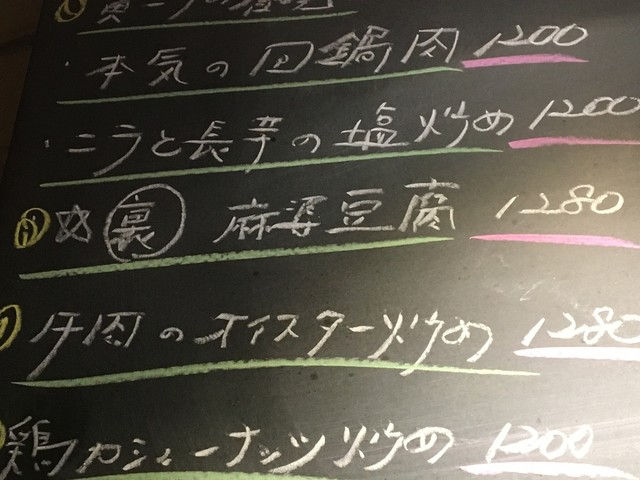 ・本気の回鍋肉 1200
・ニラと長芋の塩炒め 1200
☆裏 麻婆豆腐 1280
牛肉のオイスター炒め 1280
鶏カシューナッツ炒め 1200